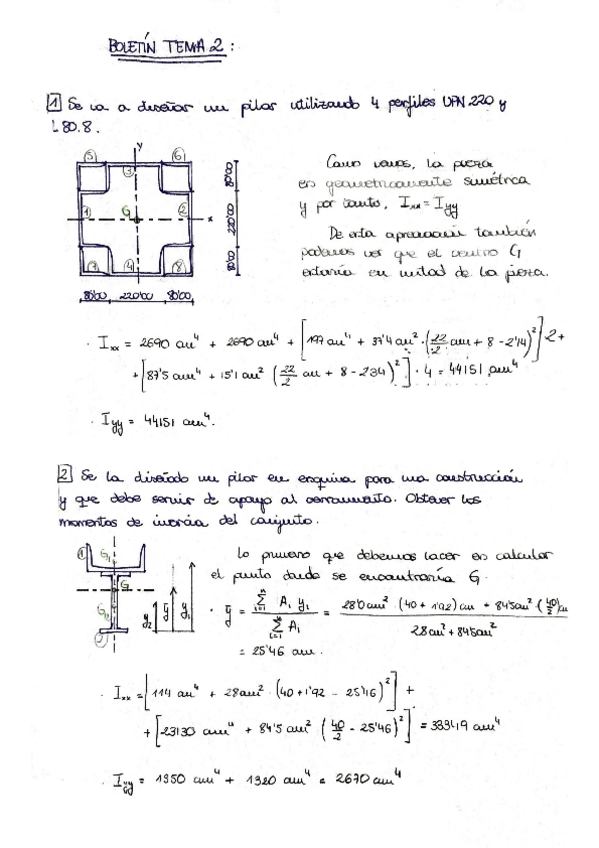 BOLETÍN TEMA 2:
1 Se va a diseñar un pilar utilizando 4 perfiles UPN 220 y
L 80.8.
Como vemos, la pieza
es geométricamente simétrica
y por tanto, Ixx = Iyy
De esta apreciación también
podemos ver que el centro G
estaría en mitad de la pieza.
5 6
y
3
1 G 2 x
7 4 8
80'00 220'00 80'00
80'00 220'00 80'00
· Ixx = 2690 cm⁴ + 2690 cm⁴ + [197 cm⁴ + 37'4 cm² · (22/2 cm + 8 - 2'14)²]·2 +
+ [87'5 cm⁴ + 15'1 cm² (22/2 cm + 8 - 2'34)²] · 4 = 44151 cm⁴
· Iyy = 44151 cm⁴.
2 Se ha diseñado un pilar en esquina para una construcción
y que debe servir de apoyo al cerramiento. Obtener los
momentos de inercia del conjunto.
Lo primero que debemos hacer es calcular
el punto donde se encontraría G.
1 G₁
G
G₂
2
y₂ ȳ y₁
· ȳ = Σ Ai yi / Σ Ai = 28'0 cm² · (40 + 1'92) cm + 84'5 cm² · (40/2) cm / 28 cm² + 84'5 cm²
= 25'46 cm.
· Ixx = [114 cm⁴ + 28 cm² · (40 + 1'92 - 25'46)²] +
+ [23130 cm⁴ + 84'5 cm² (40/2 - 25'46)²] = 33349 cm⁴
· Iyy = 1350 cm⁴ + 1320 cm⁴ = 2670 cm⁴